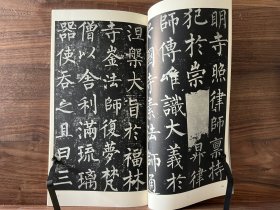 明寺照律師禀持
犯於崇昇律
師傳唯識大義於
安國寺素法師通
涅槃大旨於福林
寺崟法師復夢梵
僧以舍利滿琉璃
器使吞之且曰三